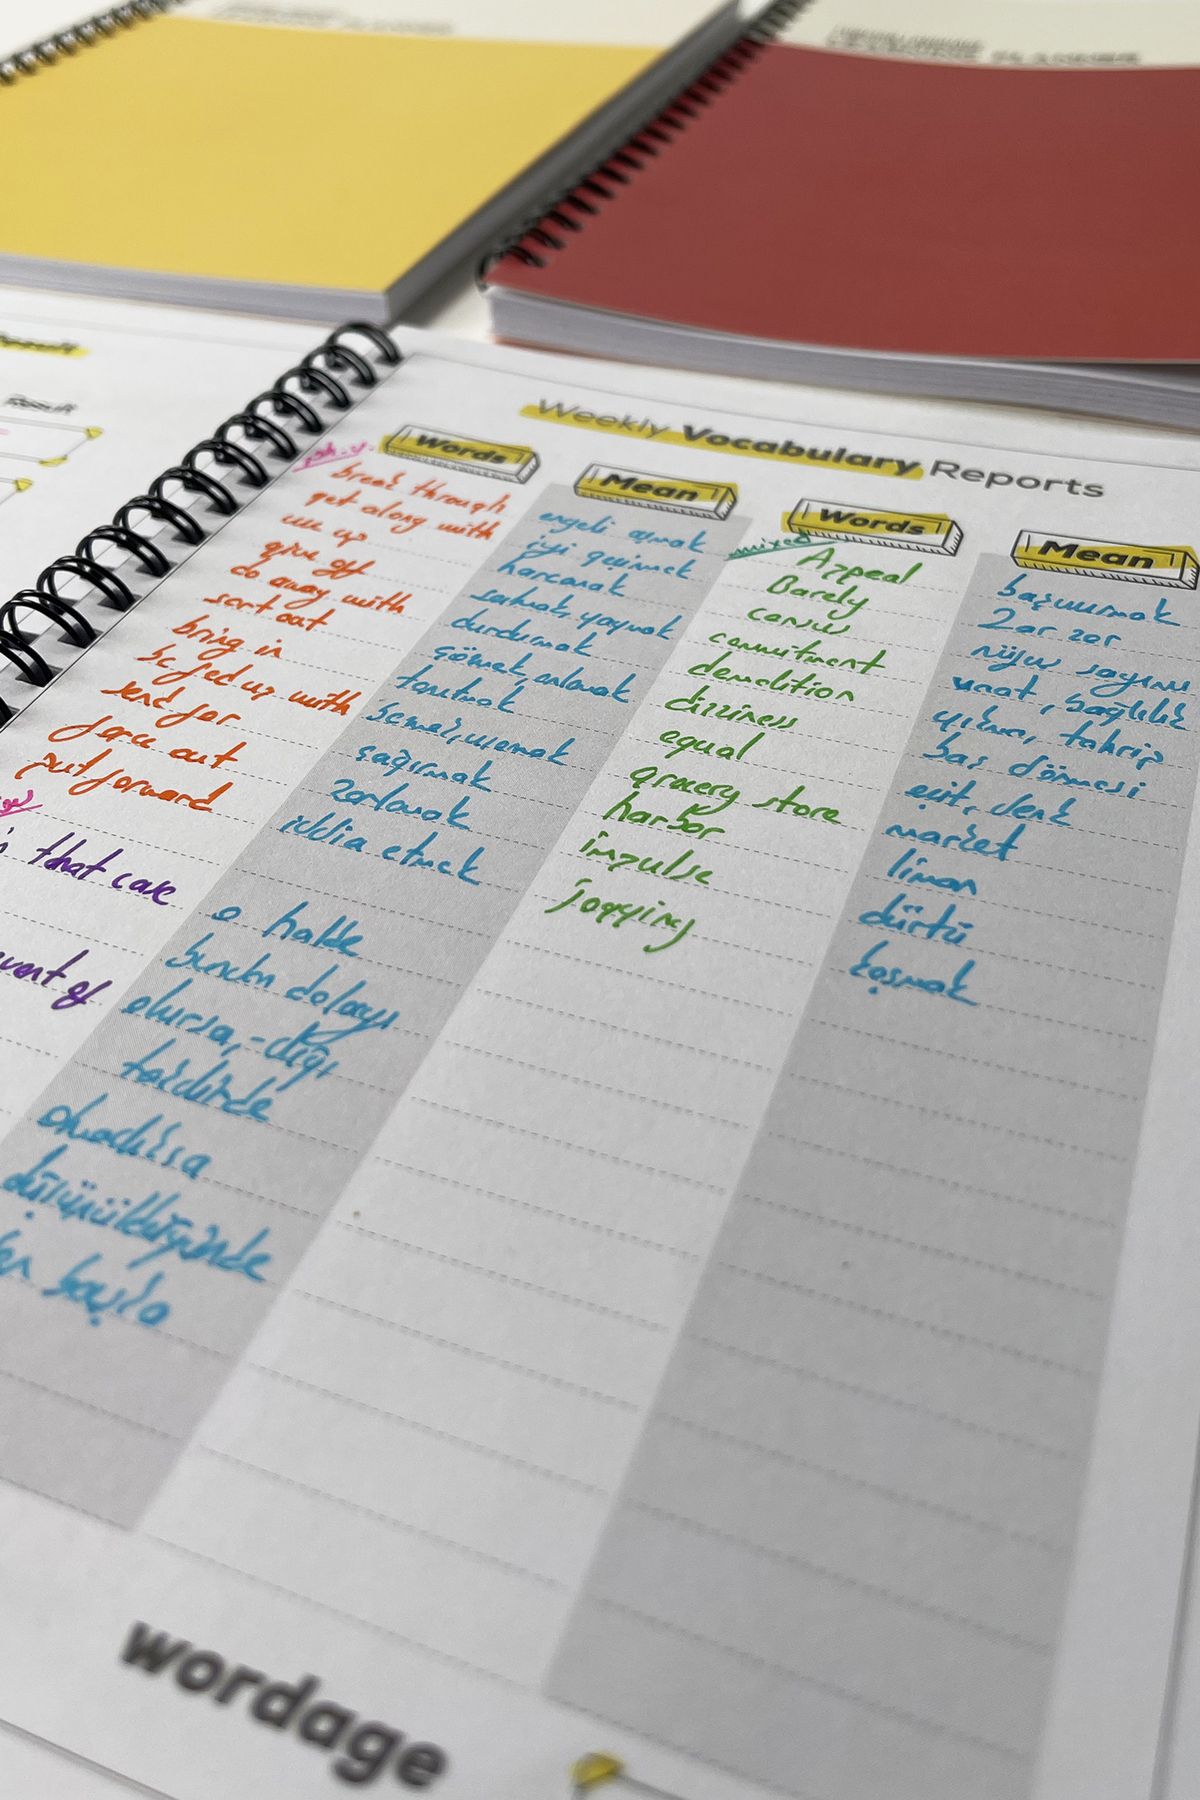 Weekly Vocabulary Reports
Words
ph.v.
break through
get along with
use up
give off
do away with
sort out
bring in
be fed up with
send for
force out
put forward
that case
event of
Mean
engeli aşmak
iyi geçinmek
harcamak
salmak, yaymak
durdurmak
çözmek, anlamak
tanıtmak
zorlamak
iddia etmek
o halde
olursa, -diği
takdirde
olmadıkça
düşünüldüğünde
başla
Words
mixed
Appeal
Barely
census
commitment
demolition
dizziness
equal
grocery store
harbor
impulse
jogging
Mean
başvurmak
zar zor
nüfus sayımı
vaat, bağlılık
yıkım, tahrip
baş dönmesi
eşit, denk
market
liman
dürtü
koşmak
wordage